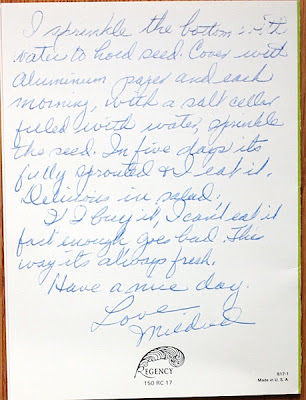 I sprinkle the bottom with
water to hold seed. Cover with
aluminum paper and each
morning, with a salt celler
filled with water, sprinkle
the seed. In five days its
fully sprouted & I eat it.
Delicious in salad.
If I buy it, I can't eat it
fast enough, goes bad. This
way it's always fresh.
Have a nice day.
Love
Mildred
REGENCY
150 RC 17
617-1
Made in U.S.A